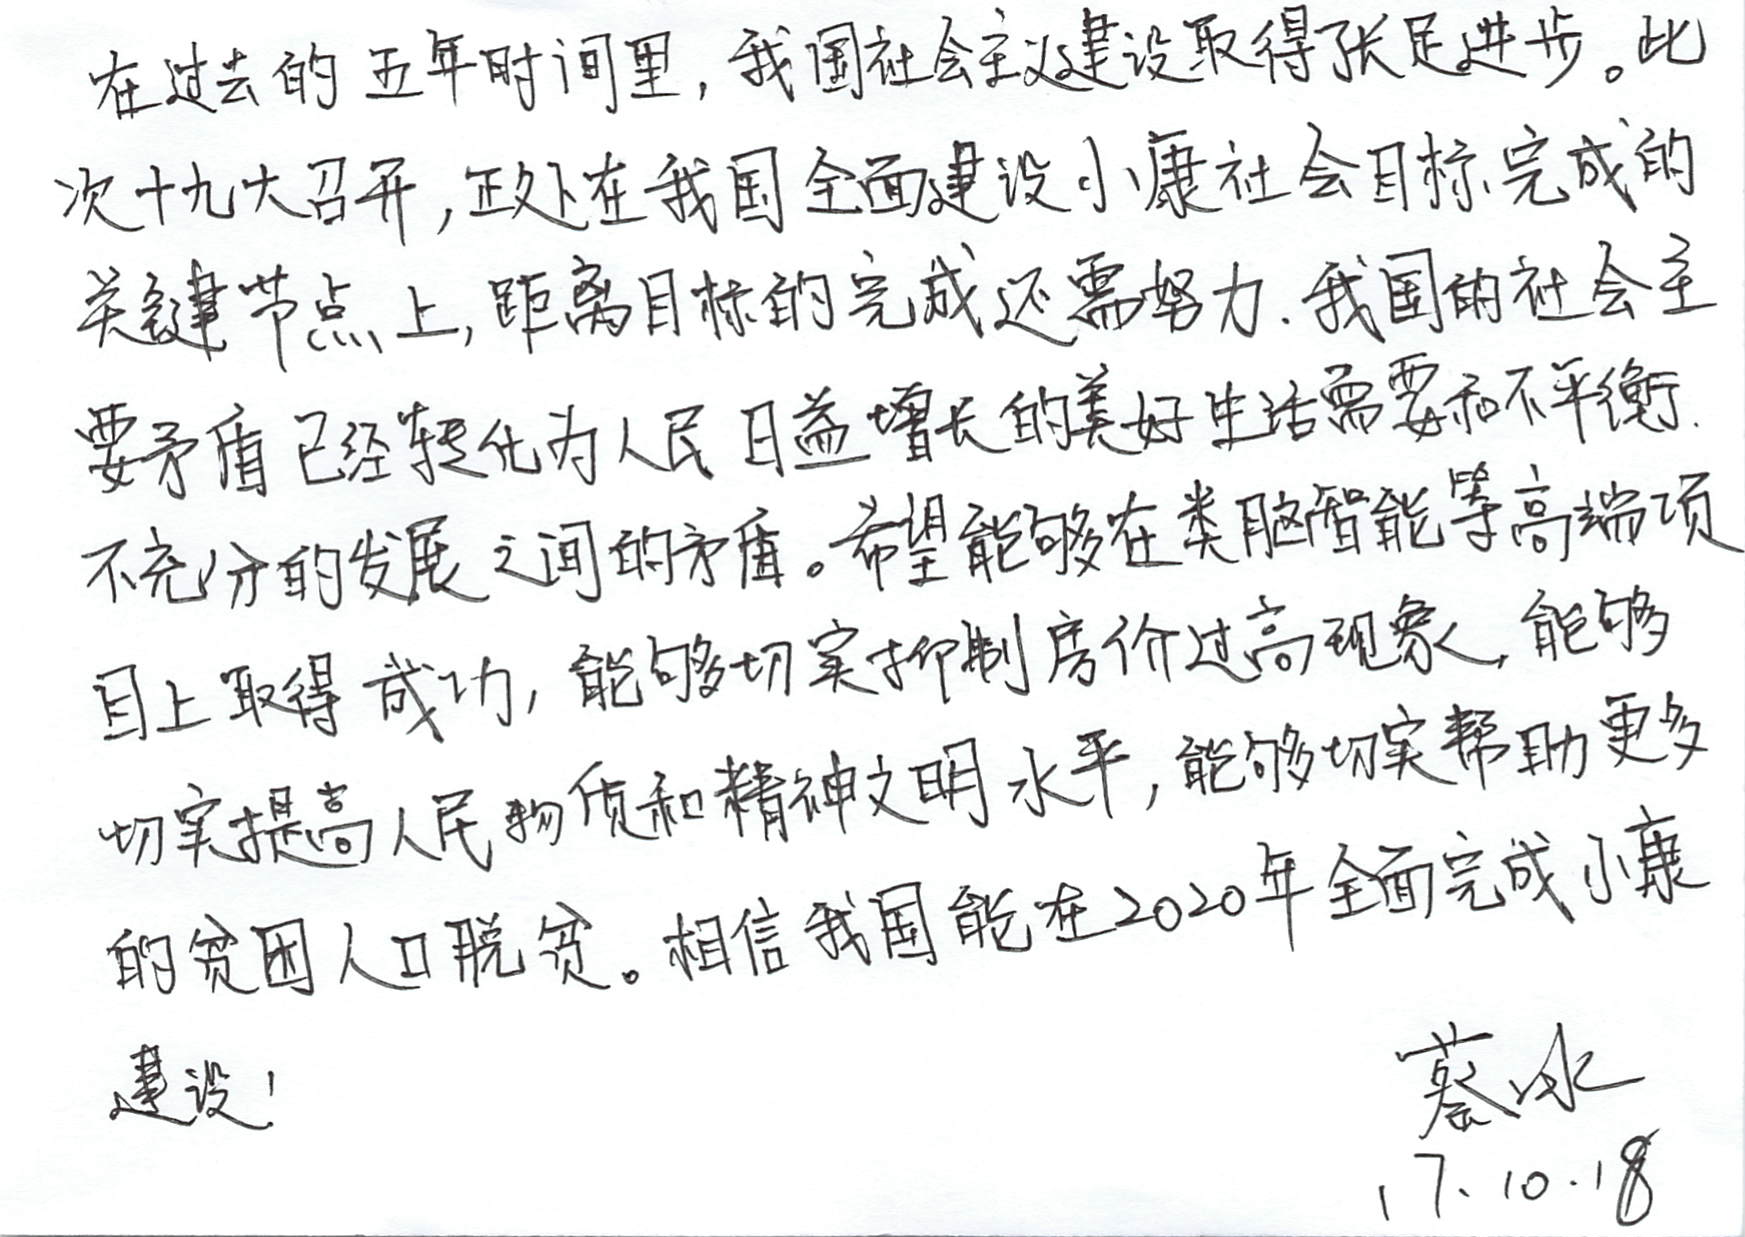 在过去的五年时间里，我国社会主义建设取得了长足进步。此
次十九大召开，正处在我国全面建设小康社会目标完成的
关键节点上，距离目标的完成还需努力.我国的社会主
要矛盾已经转化为人民日益增长的美好生活需要和不平衡.
不充分的发展之间的矛盾。希望能够在类脑智能等高端项
目上取得成功，能够切实抑制房价过高现象，能够
切实提高人民物质和精神文明水平，能够切实帮助更多
的贫困人口脱贫。相信我国能在2020年全面完成小康
建设！
蔡冰
17.10.18